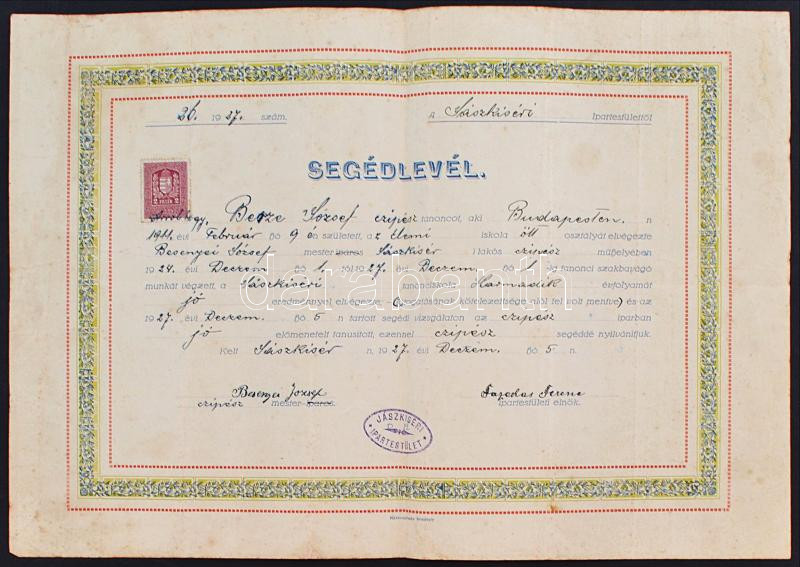 26. 1927. szám. A Jászkiséri Ipartestülettől
SEGÉDLEVÉL.
2 PENGŐ 2
Arról hogy, Besze József czipész tanoncot, aki Budapesten n
1911. évi Február hó 9 én született, a z elemi iskola ött osztályát elvégezte
Besenyei József mester iparos Jászkisér i lakós czipész műhelyében
1924. évi Deczem. hó 1. től 1927. évi Deczem. hó 1. ig tanonci szakbavágó
munkát végzett, a Jászkiséri tanonciskola Harmadik évfolyamát
jó eredménnyel elvégezte, – (látogatásának kötelezettsége alól fel volt mentve) és az
1927. évi Deczem. hó 5 n tartott segédi vizsgálaton az czipész iparban
jó előmenetelt tanusitott, ezennel czipész segéddé nyilvánitjuk.
Kelt Jászkisér n, 1927 évi Deczem. hó 5. n.
Besenyei József
czipész mester-iparos.
Ferenc
ipartestületi elnök.
JÁSZKISÉRI
IPARTESTÜLET
darabanth